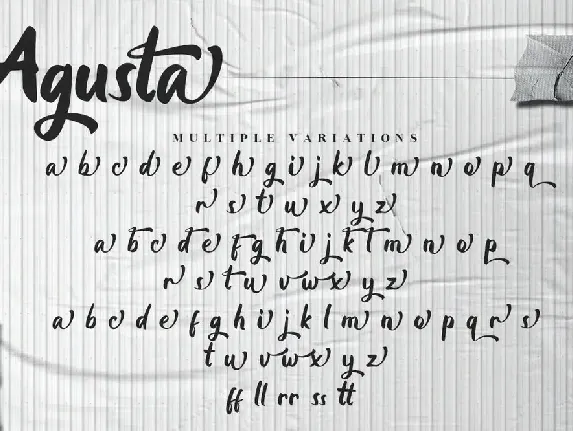 Agusta
MULTIPLE VARIATIONS
a b c d e f h g i j k l m n o p q
r s t u w x y z
a b c d e f g h i j k l m n o p
r s t u v w x y z
a b c d e f g h i j k l m n o p q r s
t u v w x y z
ff ll rr ss tt